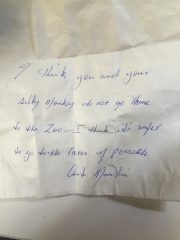 I think you and your
silly monkey do not go home
to the Zoo - I think it's safer
to go to the if possible